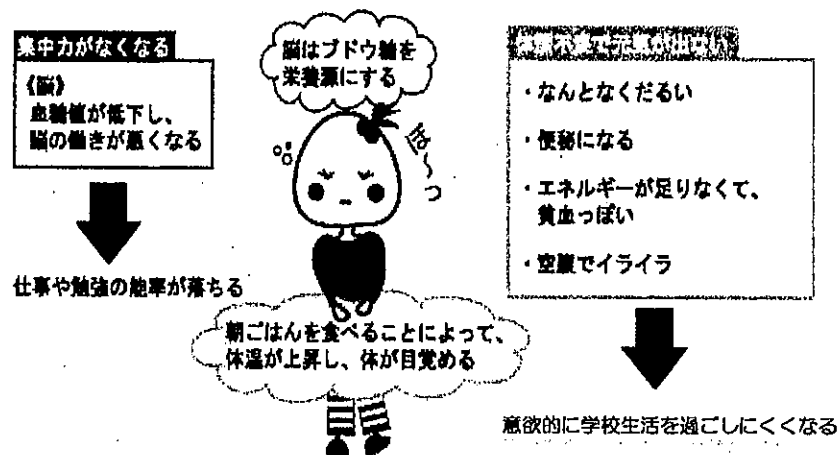 集中力がなくなる
《脳》
血糖値が低下し、
脳の働きが悪くなる
仕事や勉強の能率が落ちる
脳はブドウ糖を
栄養源にする
は〜っ
朝ごはんを食べることによって、
体温が上昇し、体が目覚める
で元気が出ない
・なんとなくだるい
・便秘になる
・エネルギーが足りなくて、
貧血っぽい
・空腹でイライラ
意欲的に学校生活を過ごしにくくなる